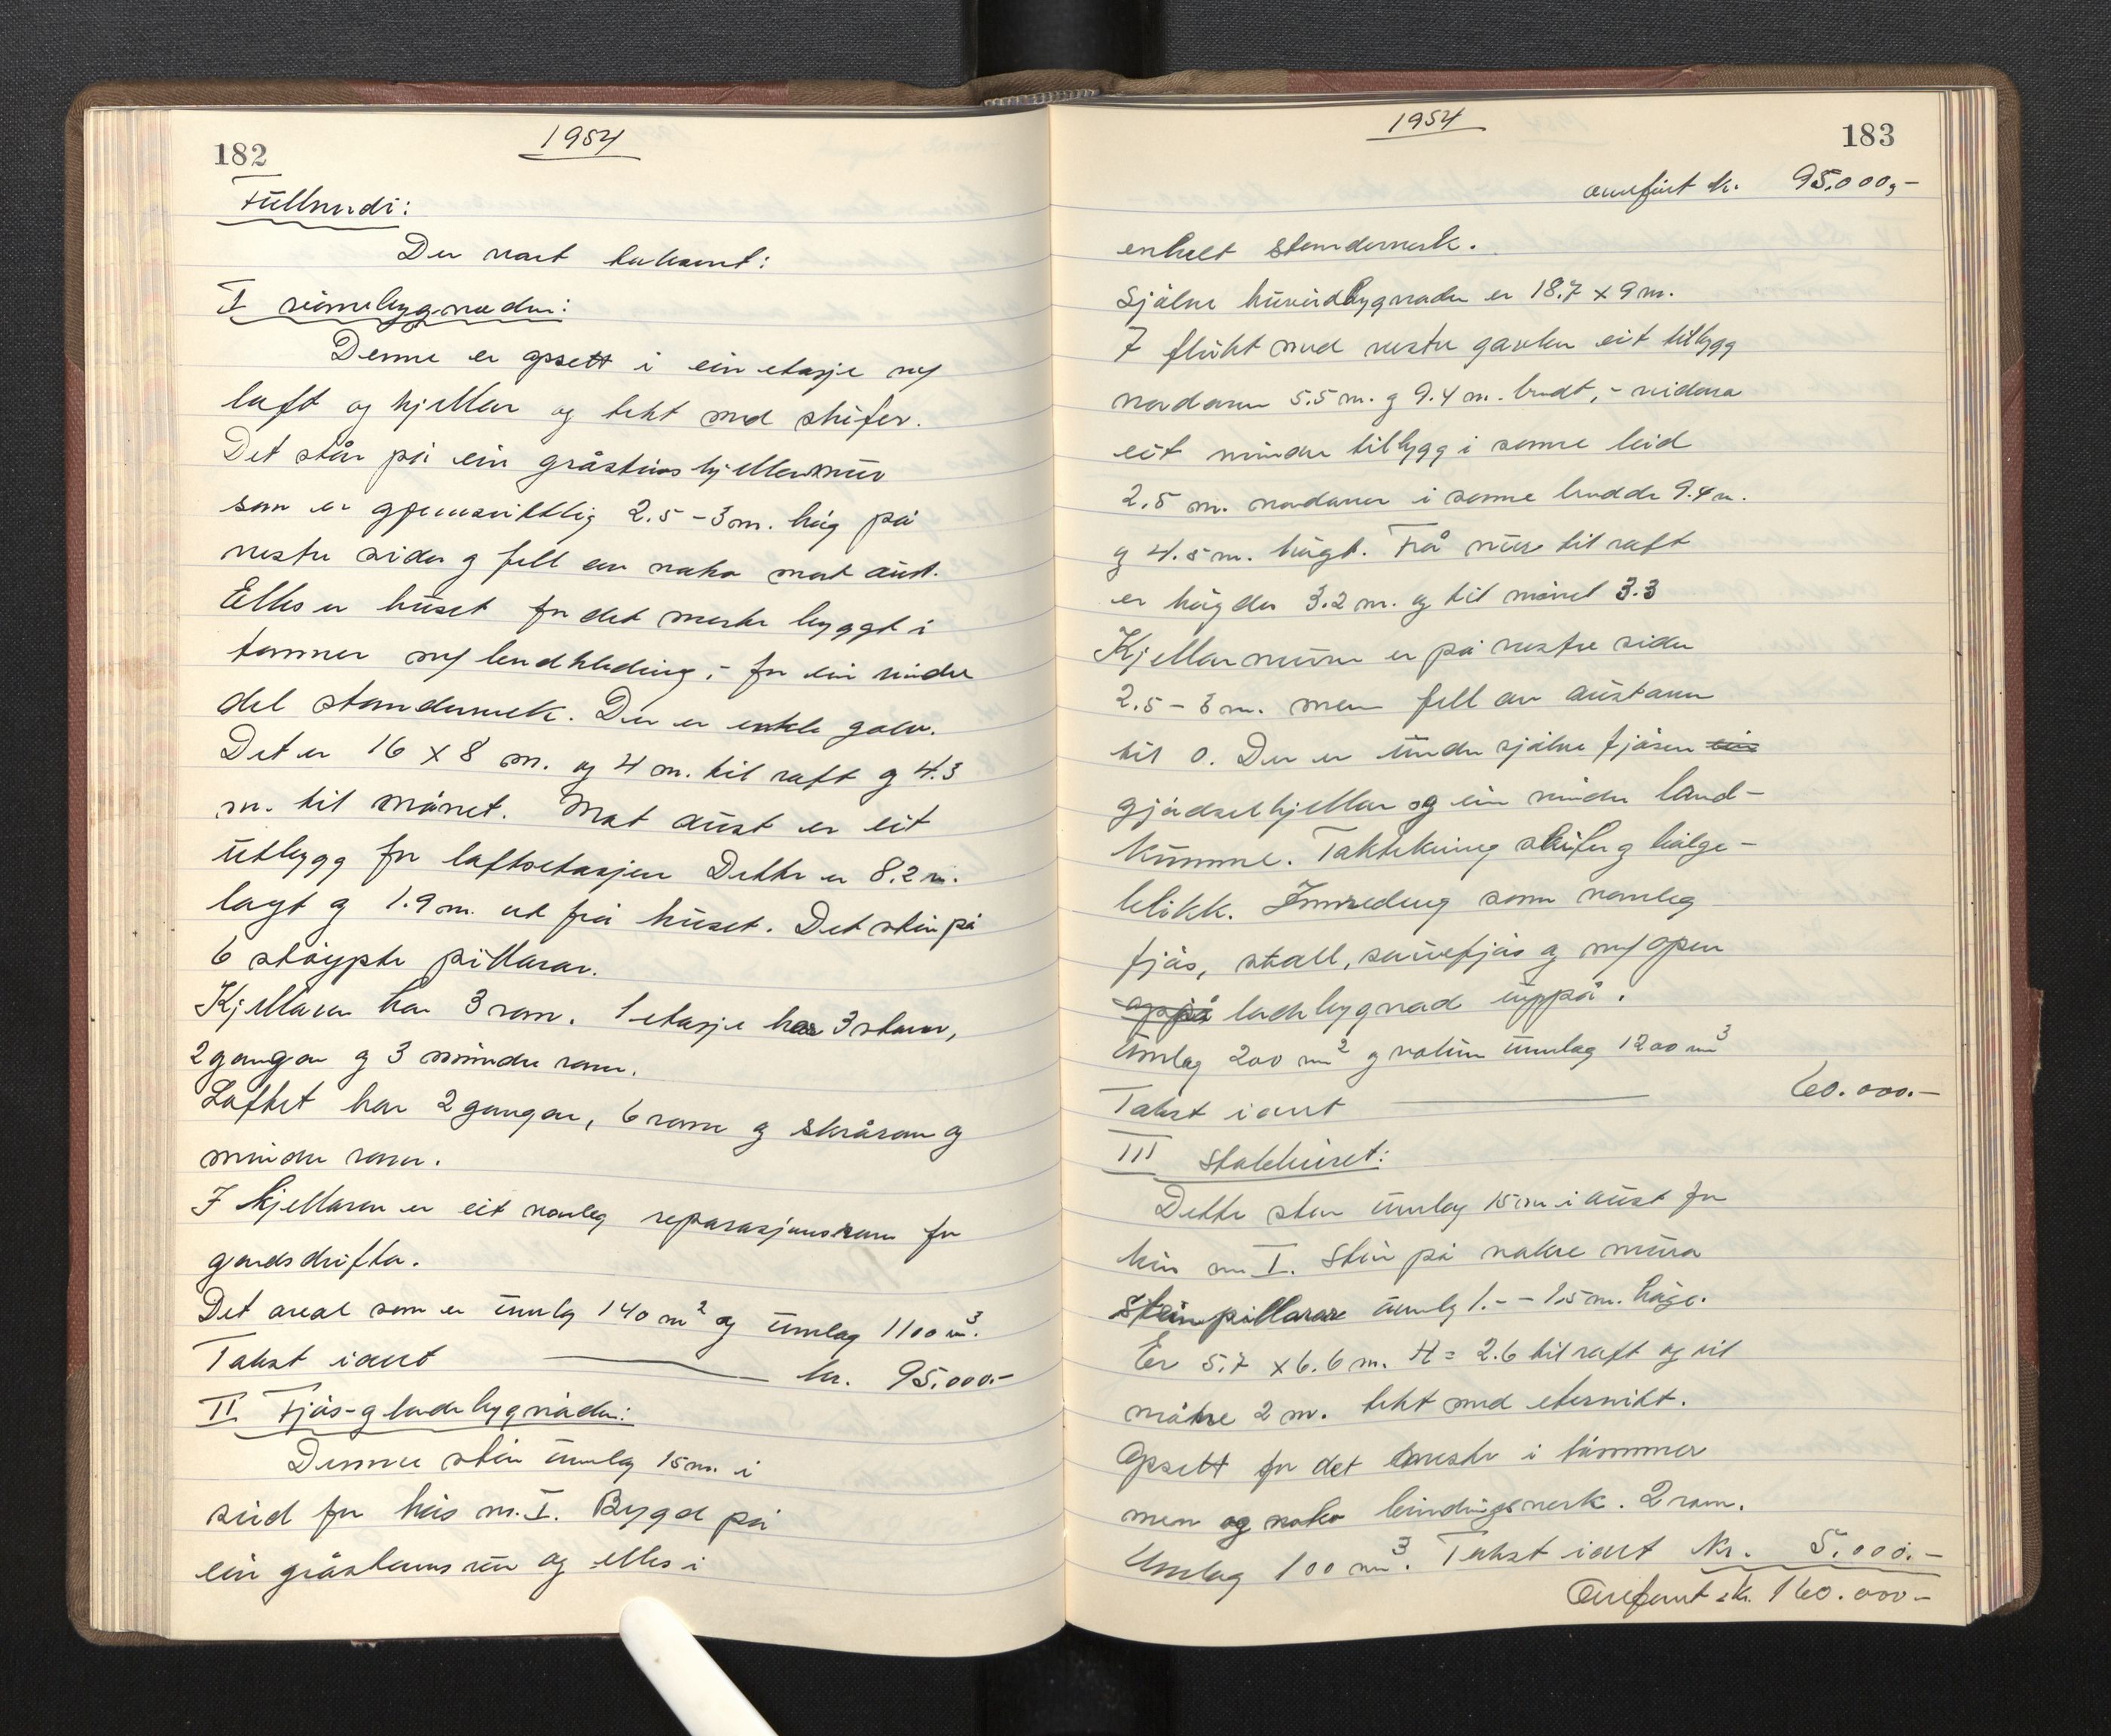 182
1954
Fullverdi:
Der vart taksert:
I våningsbygnaden:
Denne er opsett i ein etasje m/
loft og kjellar og tekt med skifer.
Det står på ein gråsteins kjellarmur
som er gjennomsnittlig 2.5 – 3 m. høg på
vestre sida og fell av noko mot aust.
Elles er huset for det meste byggt i
tømmer m/ bordkledning, – for ein mindre
del standerverk. Der er enkle golv.
Det er 16 x 8 m. og 4 m. til raft og 4.3
m. til mønet. Mot aust er eit
utbygg for loftsetasjen Dette er 8.2 m.
langt og 1.9 m. ut frå huset. Det står på
6 støypte pillarar.
Kjellaren har 3 rom. 1 etasje har 3 stover,
2 gangar og 3 mindre rom.
Loftet har 2 gangar, 6 rom og skrårom og
mindre rom.
I kjellaren er eit vanleg reparasjonsrom for
gardsdrifta.
Det areal som er umlag 140 m² og umlag 1100 m³.
Takst i alt — kr. 95.000.-
II Fjøs- og ladebygnaden:
Denne står umlag 15 m. i
sud for hus nr. I. Bygd på
ein gråsteinsmur og elles i
1954
183
overført kr. 95.000,-
enkelt standerverk.
Sjølve hovudbygnaden er 18.7 x 9 m.
I flukt med vestre gavlen eit tilbygg
nordover 5.5 m. og 9.4 m. breidt, – vidare
eit mindre tilbygg i same leid
2.5 m. nordover i same breidde 9.4 m.
og 4.5 m. høgt. Frå mur til raft
er høgden 3.2 m. og til mønet 3.3
Kjellarmuren er på vestre sida
2.5 – 3 m. men fell av austover
til 0. Der er under sjølve fjøsen ein
gjødselkjellar og ein mindre land-
kumme. Taktekking skifer og bølge-
blikk. Innreding som vanleg
fjøs, stall, sauefjøs og m/ open
oppå ladebygnad uppå.
Umlag 200 m² og volum umlag 1200 m³
Takst i alt — 60.000.-
III Stabburet:
Dette står umlag 15 m i aust for
hus nr. I. Står på nokre mura
steinpillarar umlag 1.- – 1.5 m. høge.
Er 5.7 x 6.6 m. H = 2.6 til raft og til
møne 2 m. tekt med eternitt.
Opsett for det meste i tømmer
men og noko bindingsverk. 2 rom.
Umlag 100 m³. Takst i alt kr. 5.000.-
Overført kr. 160.000-